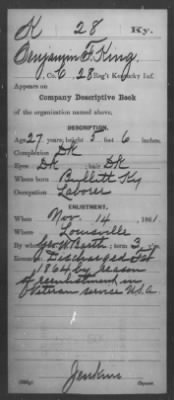 K 28 Ky.
Benjamin F. King
, Co. C, 28 Reg't Kentucky Inf.
Appears on
Company Descriptive Book
of the organization named above.
DESCRIPTION.
Age 27 years; height 5 feet 6 inches.
Complexion DK
Eyes DK ; hair DK
Where born Bullitt Ky
Occupation Laborer
ENLISTMENT.
When Nov. 14, 1861
Where Louisville
By Geo W Barth ; term 3 y'rs.
Remarks: Discharged Feb
1864 by reason
of reenlistment in
Veteran service U.S.A.
Jenkins
Copyist.